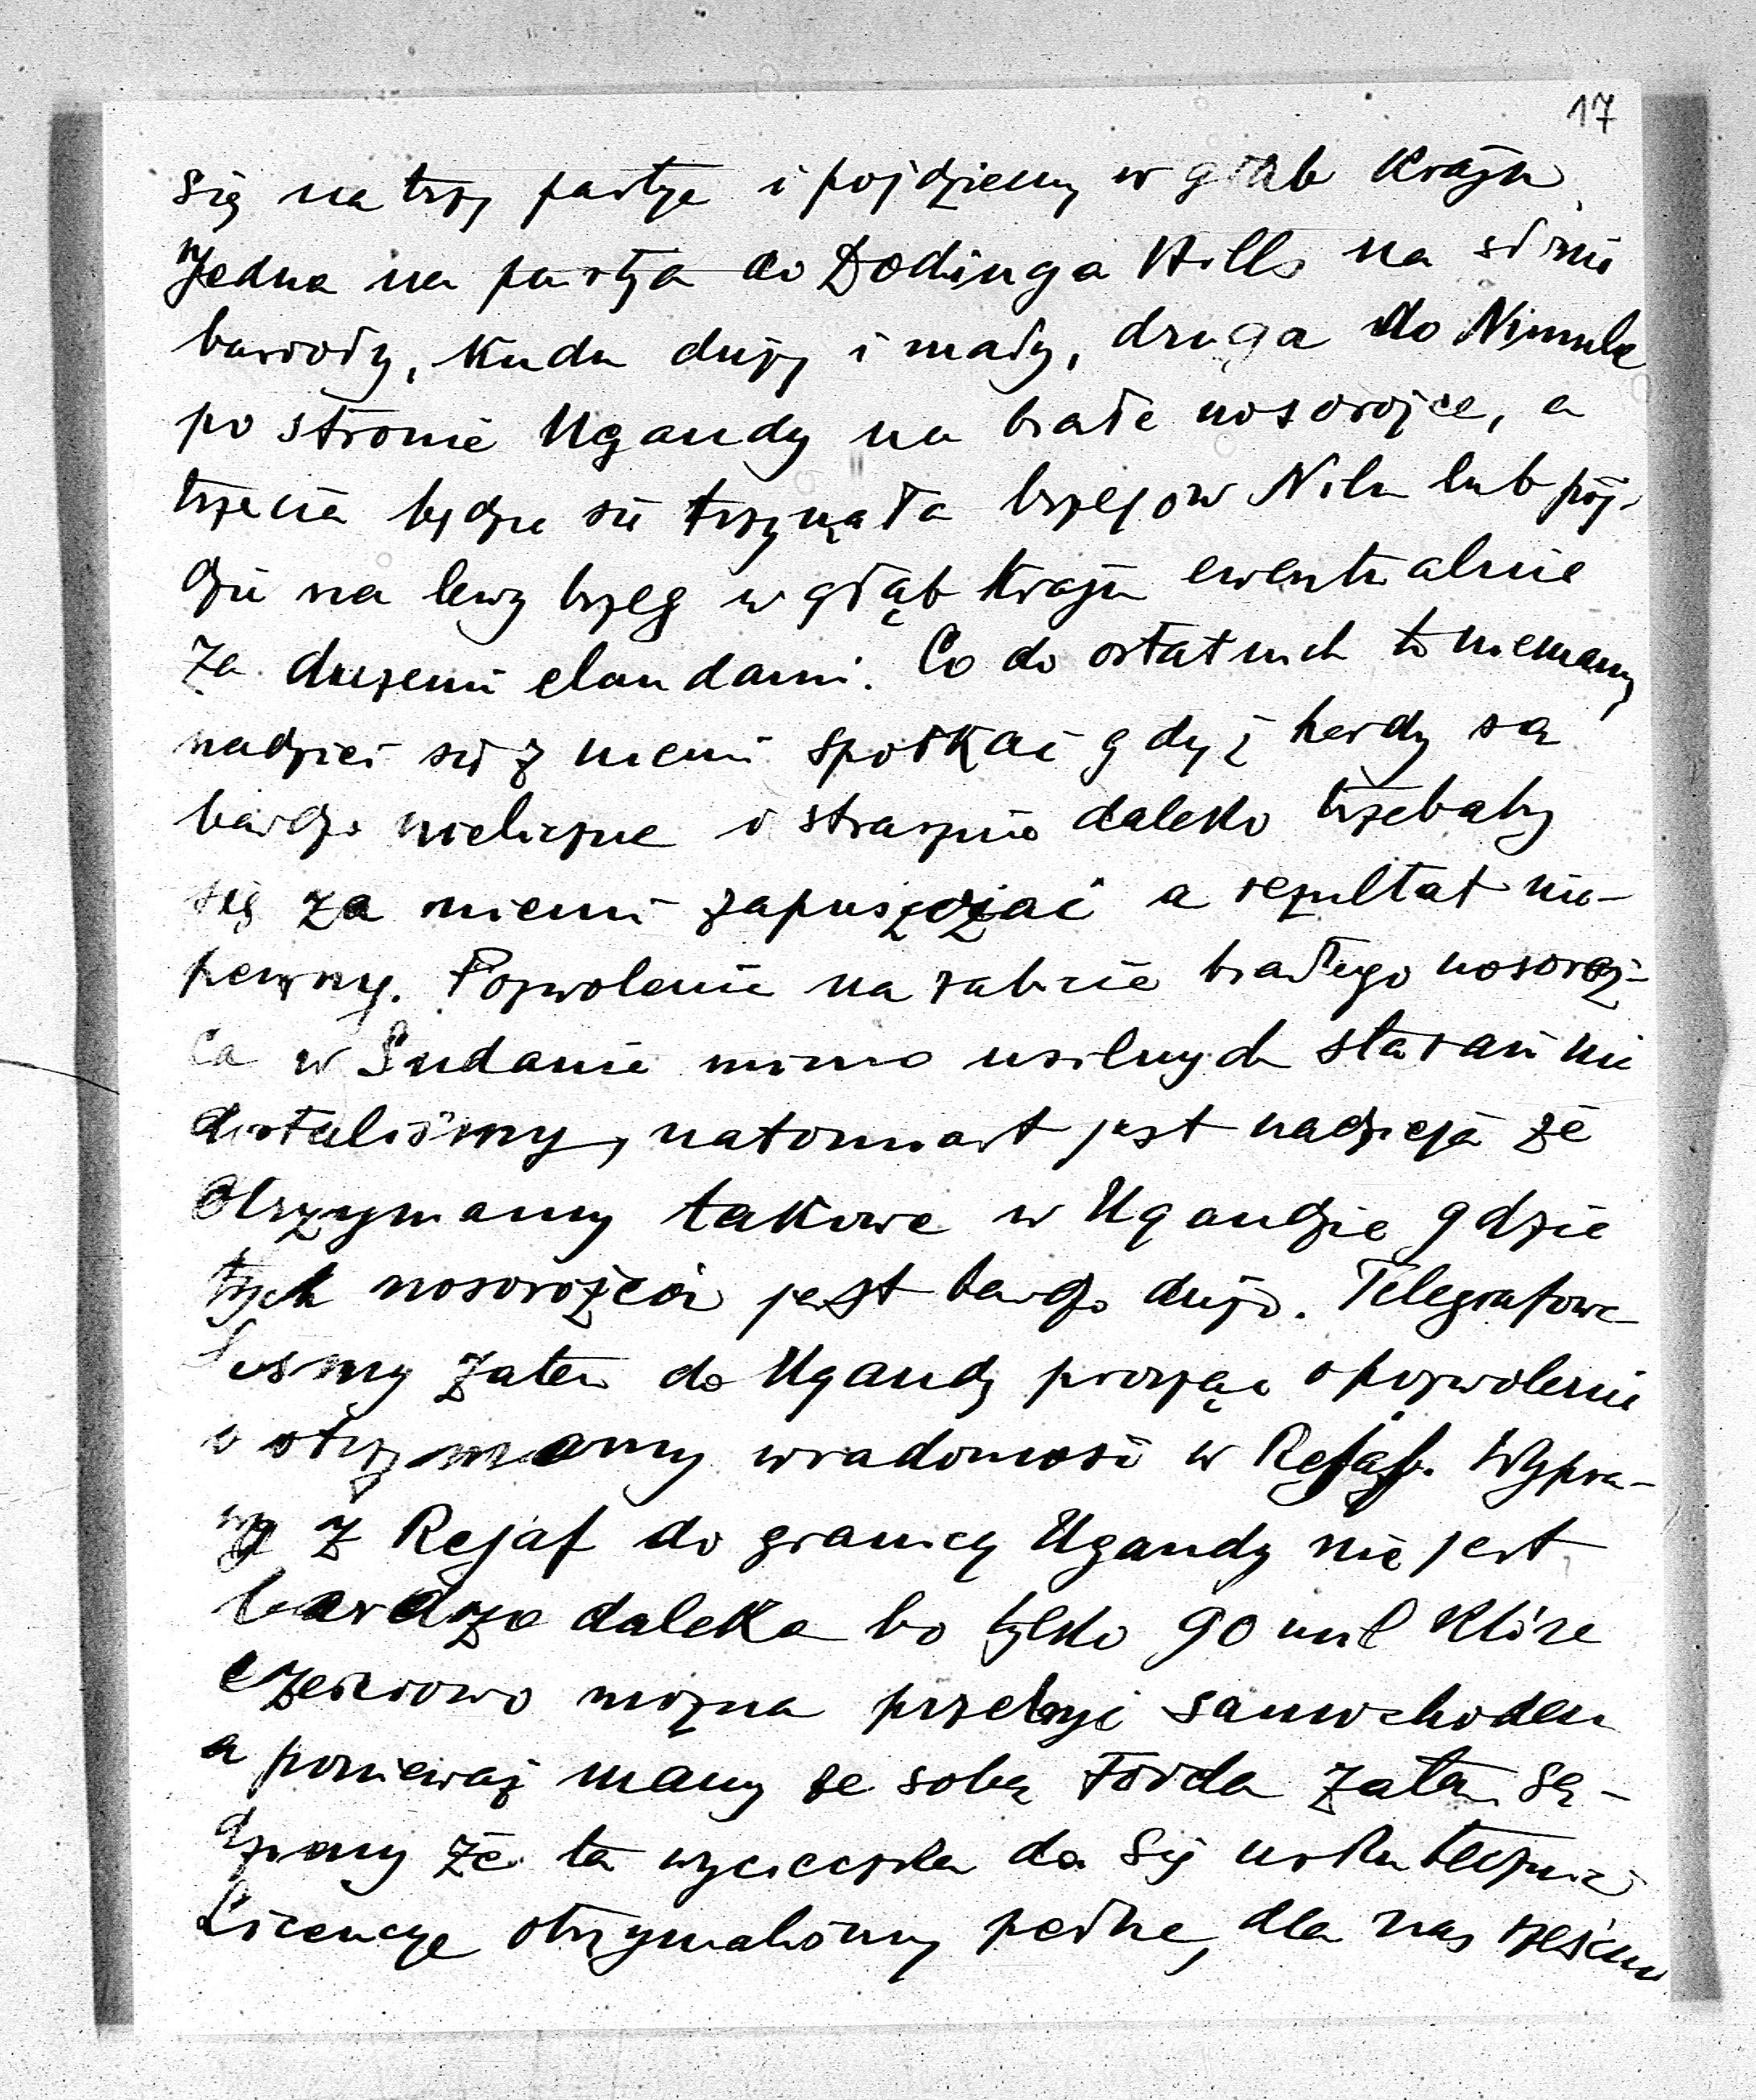 17
się na trzy partje i pójdziemy w głąb kraju.
Jedna na partja do Dodinga Hills na słonie
bawoły, kudu duży i mały, druga do Nimule
po stronie Ugandy na białe nosorożce, a
trzecia będzie się trzymała brzegów Nilu lub pój-
dzie na lewy brzeg w głąb kraju ewentualnie
za dużemi elandami. Co do ostatnich to niemamy
nadziei się z niemi spotkać gdyż herdy są
bardzo nieliczne i strasznie daleko trzebaby
się za niemi zapuszczać a rezultat nie-
pewny. Pozwolenie na zabicie białego nosoroż-
ca w Sudanie mimo usilnych starań nie
dostaliśmy, natomiast jest nadzieja że
otrzymamy takowe w Ugandzie gdzie
tych nosorożców jest bardzo dużo. Telegrafowa-
liśmy zatem do Ugandy prosząc o pozwolenie
i otrzymamy wiadomość w Rejaf. Wypra-
wa z Rejaf do granicy Ugandy nie jest
bardzo daleka bo tylko 90 mil które
częściowo można przebyć samochodem
a ponieważ mamy ze sobą Forda zatem są-
dzimy że ta wycieczka da się uskutecznić
Licencje otrzymaliśmy pełne, dla nas sześciu